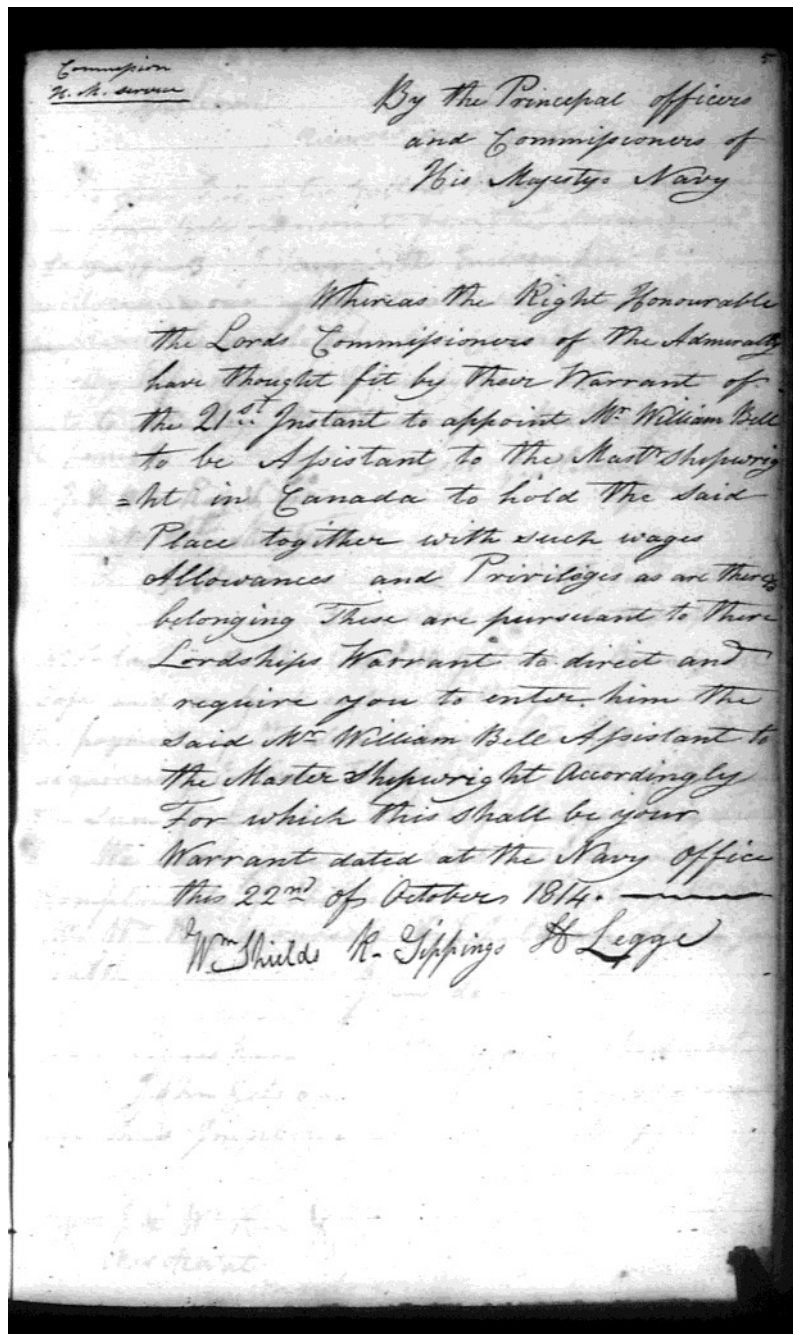 Commission
H. M. service
5
By the Principal officers
and Commissioners of
His Majestys Navy
Whereas the Right Honourable
the Lords Commissioners of the Admeralty
have thought fit by there Warrant of
the 21st Instant to appoint Mr William Bell
to be Assistant to the Mastr Shipwrig
=ht in Canada to hold the said
Place together with such wages
Allowances and Priviliges as are thereto
belonging These are pursuant to there
Lordships Warrant to direct and
require you to enter him the
said Mr William Bell Assistant to
the Master Shipwright Accordingly
For which this shall be your
Warrant dated at the Navy office
this 22nd of October 1814.
Wm Shields R. Sippings H Legge